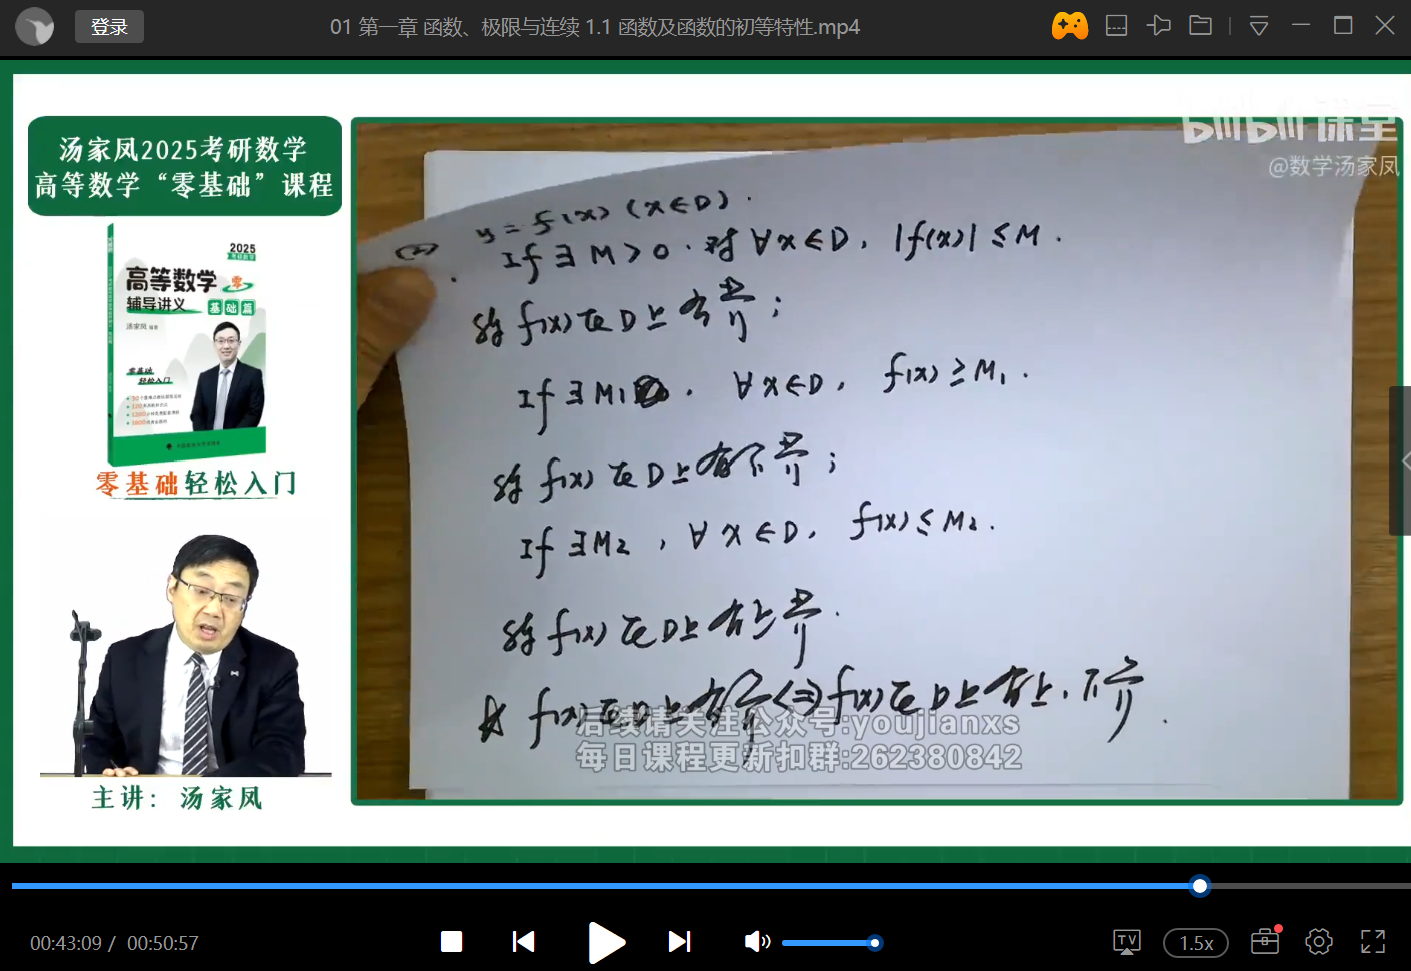 登录
01 第一章 函数、极限与连续 1.1 函数及函数的初等特性.mp4
汤家凤2025考研数学
高等数学“零基础”课程
2025
考研数学
高等数学
零
辅导讲义
基础篇
汤家凤
零基础
轻松入门
零基础轻松入门
主讲：汤家凤
bilibili课堂
@数学汤家凤
(2) y = f(x) (x∈D).
If ∃ M > 0. 对 ∀x∈D, |f(x)| ≤ M.
称 f(x) 在 D 上有界;
If ∃ M1 . ∀x∈D, f(x) ≥ M1.
称 f(x) 在 D 上有下界;
If ∃ M2, ∀x∈D, f(x) ≤ M2.
称 f(x) 在 D 上有上界.
☆ f(x) 在 D 上有界 ⇔ f(x) 在 D 上有上、下界.
后续请关注公众号:youjianxs
每日课程更新扣群:262380842
00:43:09 / 00:50:57
TV
1.5x